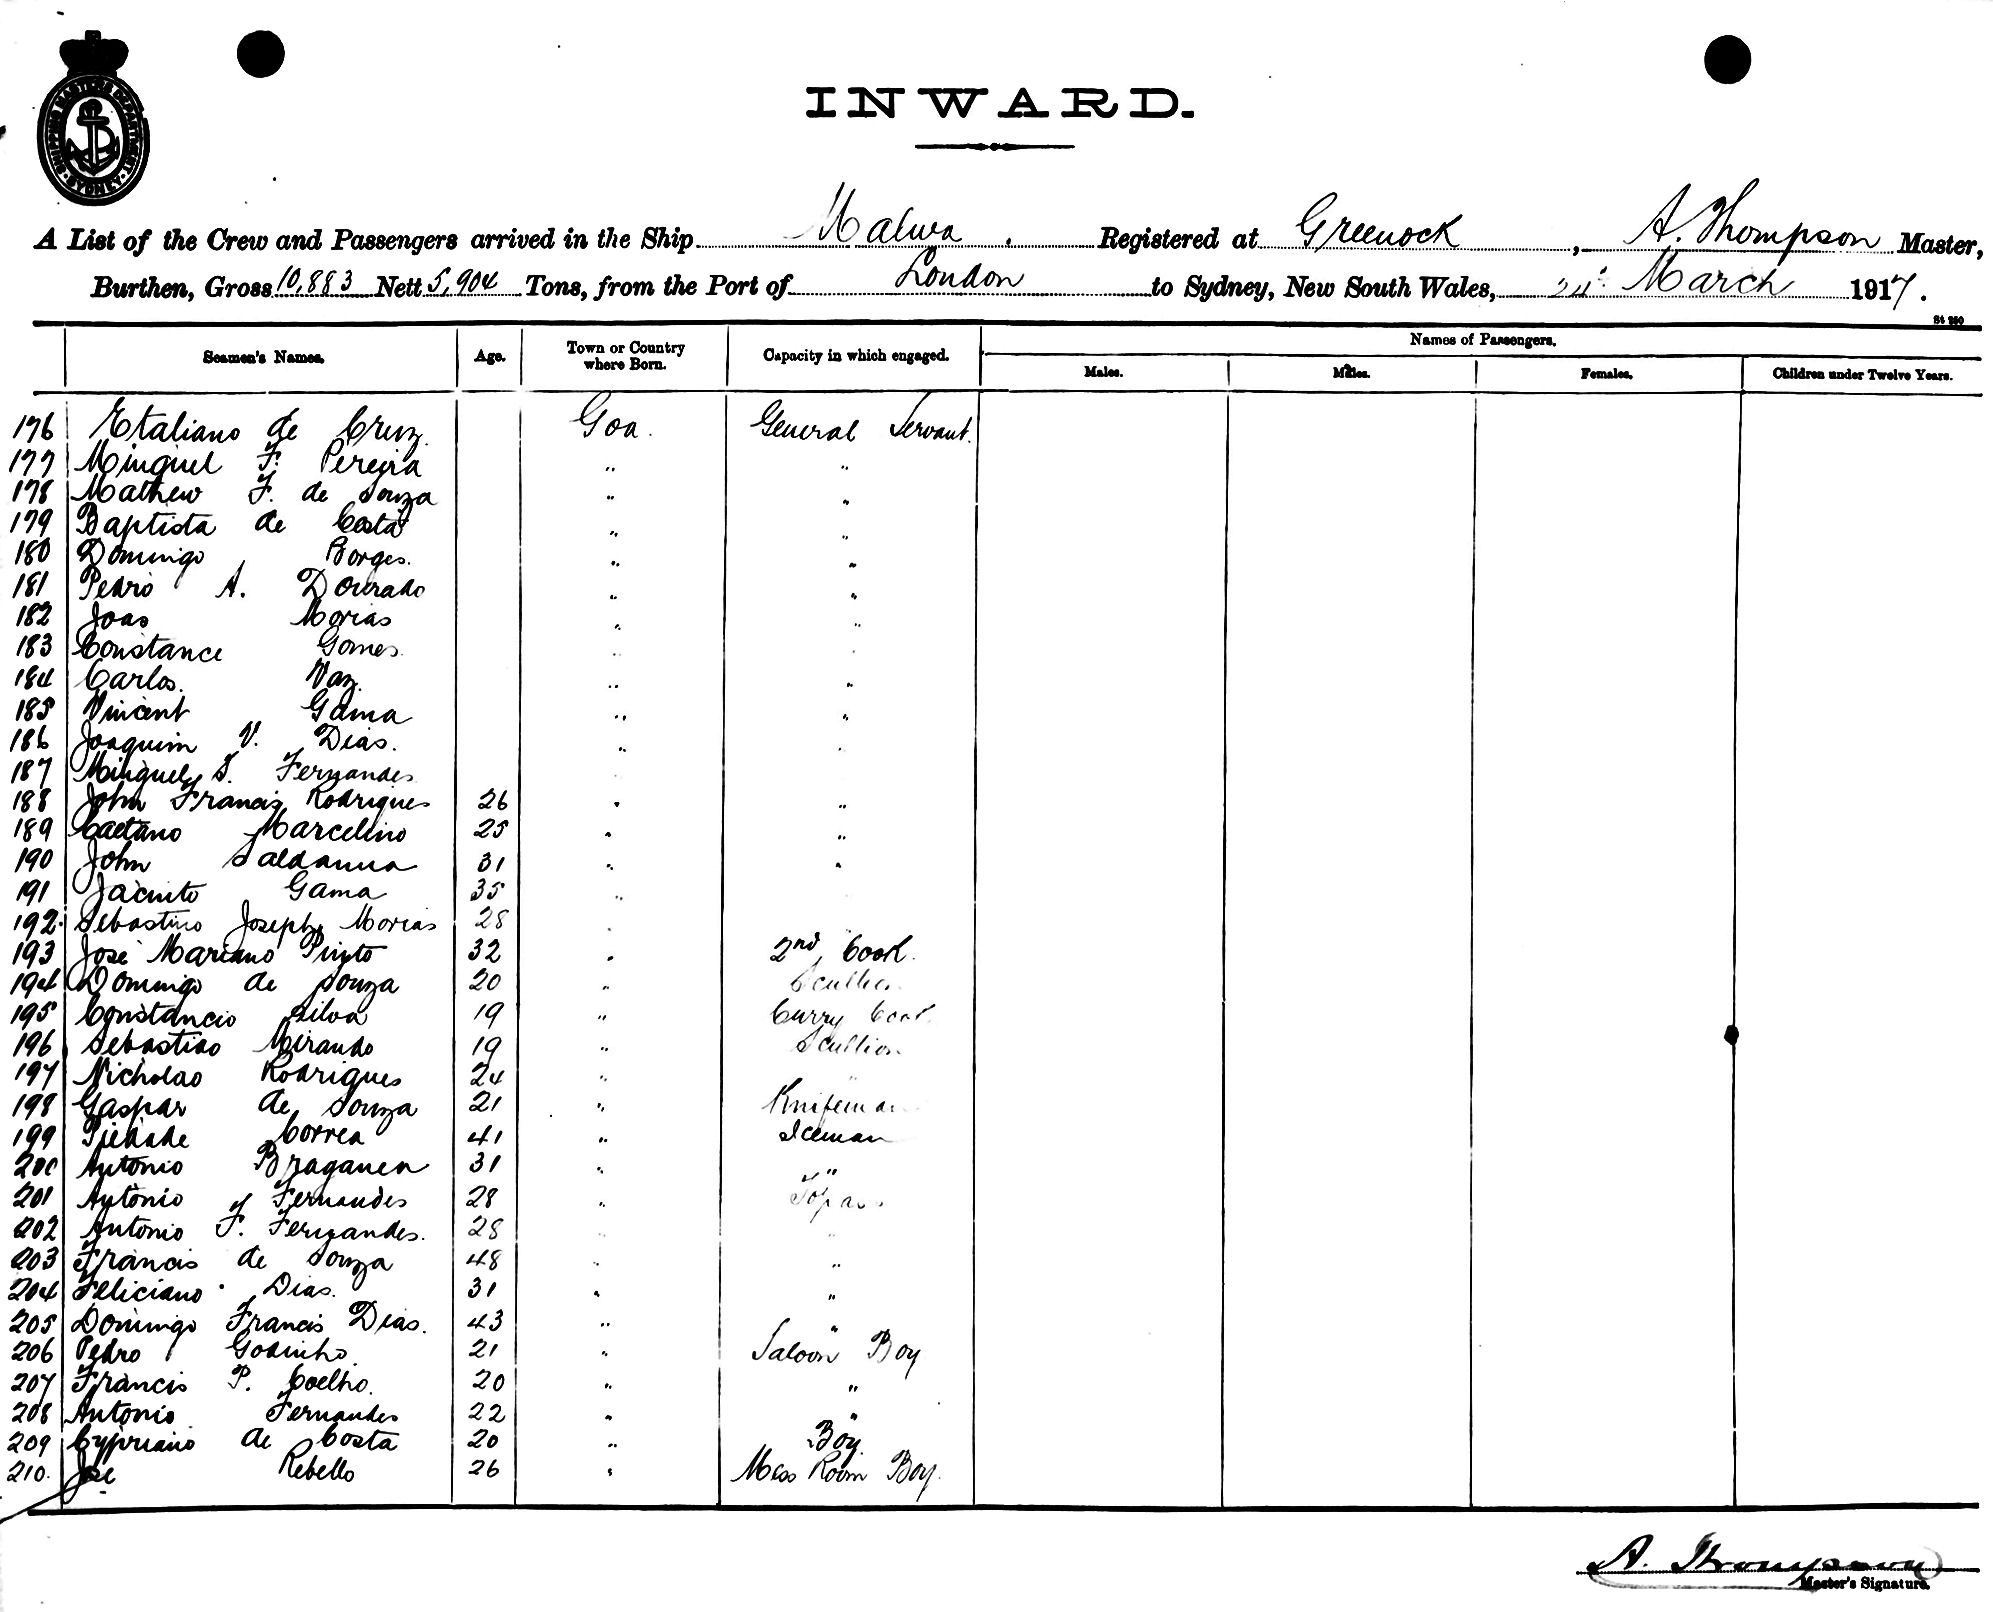 SHIPPING MASTER'S DEPARTMENT SYDNEY
INWARD.
A List of the Crew and Passengers arrived in the Ship Malwa. Registered at Greenock, A. Thompson Master,
Burthen, Gross 10,883 Nett 5,904 Tons, from the Port of London to Sydney, New South Wales, March 1917.
Seamen's Names. Age. Town or Country where Born. Capacity in which engaged. Names of Passengers.
Males. Males. Females. Children under Twelve Years.
176 Etaliano de Cruz. Goa. General Servant.
177 Minguel F. Pereira " "
178 Mathew F. de Souza " "
179 Baptista de Costa " "
180 Domingo Borges. " "
181 Pedro A. Dourado " "
182 Joao Morias " "
183 Constance Gomes. " "
184 Carlos. Vaz. " "
185 Vincent Gama " "
186 Joaquim V. Dias. " "
187 Minguel S. Fernandes
188 John Francis Rodrigues 26 " "
189 Caetano Marcelino 25 " "
190 John Saldanha 31 " "
191 Jacinto Gama 35 "
192. Sebastino Joseph Morias 28 "
193 José Mariano Pinto 32 " 2nd Cook.
194 Domingo de Souza 20 " Scullion
195 Constancio Silva 19 " Curry Cook.
196 Sebastiao Mirando 19 " Scullion
197 Nicholao Rodrigues 24 " "
198 Gaspar de Souza 21 " Knifeman
199 Piedade Correa 41 " Iceman
200 Antonio Braganca 31 " "
201 Antonio J Fernandes 28 " Topass
202 Antonio F. Fernandes. 28 " "
203 Francis de Souza 48 " "
204 Feliciano Dias. 31 " "
205 Domingo Francis Dias. 43 " "
206 Pedro Godinho. 21 " Saloon Boy
207 Francis P. Coelho. 20 " "
208 Antonio Fernandes 22 " "
209 Cypriano de Costa 20 " Boy.
210. Jose Rebello 26 " Mess Room Boy.
A. Thompson
Master's Signature.